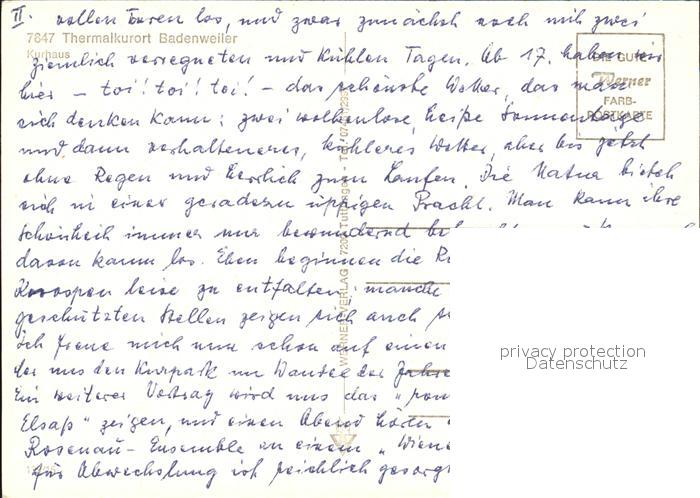 II. vollen Touren los, und zwar zunächst noch mit zwei
7847 Thermalkurort Badenweiler
Kurhaus
ziemlich verregneten und kühlen Tagen. Ab 17. haben wir
DIE GUTE
hier – toi! toi! toi! – das schönste Wetter, das man
Werner
FARB-
POSTKARTE
sich denken kann: zwei wolkenlose, heiße Sonnentage
und dann verhalteneres, kühleres Wetter, aber bis jetzt
ohne Regen und herrlich zum Laufen. Die Natur bietet
sich in einer geradezu üppigen Pracht. Man kann ihre
Schönheit immer nur bewundernd
davon kaum los. Eben beginnen die
Knospen leise zu entfalten; manche
geschützten Stellen zeigen sich auch
Ich freue mich nun schon auf einen
der uns den Kurpark im Wandel der Jahres
Ein weiterer Vortrag wird uns das
Elsaß" zeigen, und einen Abend hören
Rosenau-Ensemble zu einem „Wiene
für Abwechslung ist reichlich gesorgt
WERNER VERLAG 7200 Tuttlingen Tel.
privacy protection
Datenschutz